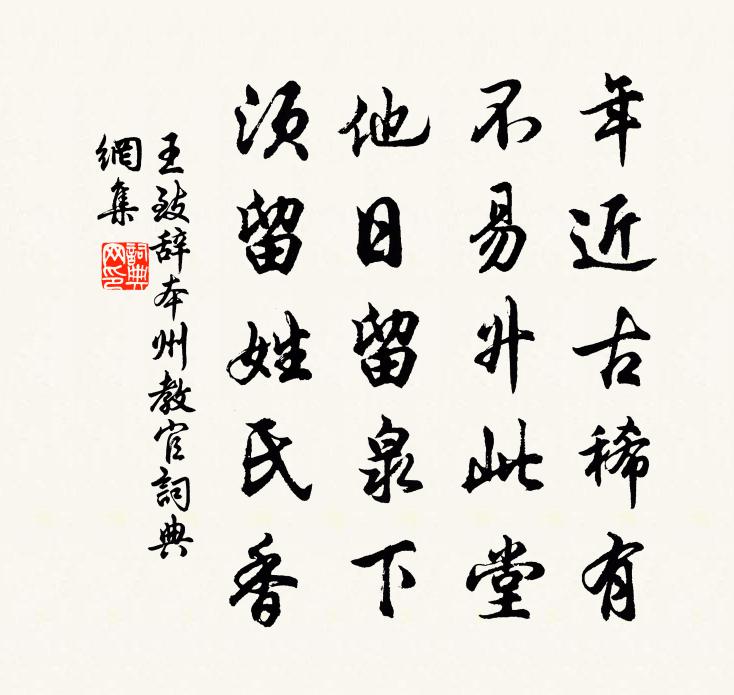 年近古稀有
不易升此堂
他日留泉下
须留姓氏香
王致辞本州教官詞典
網集
詞典
网印